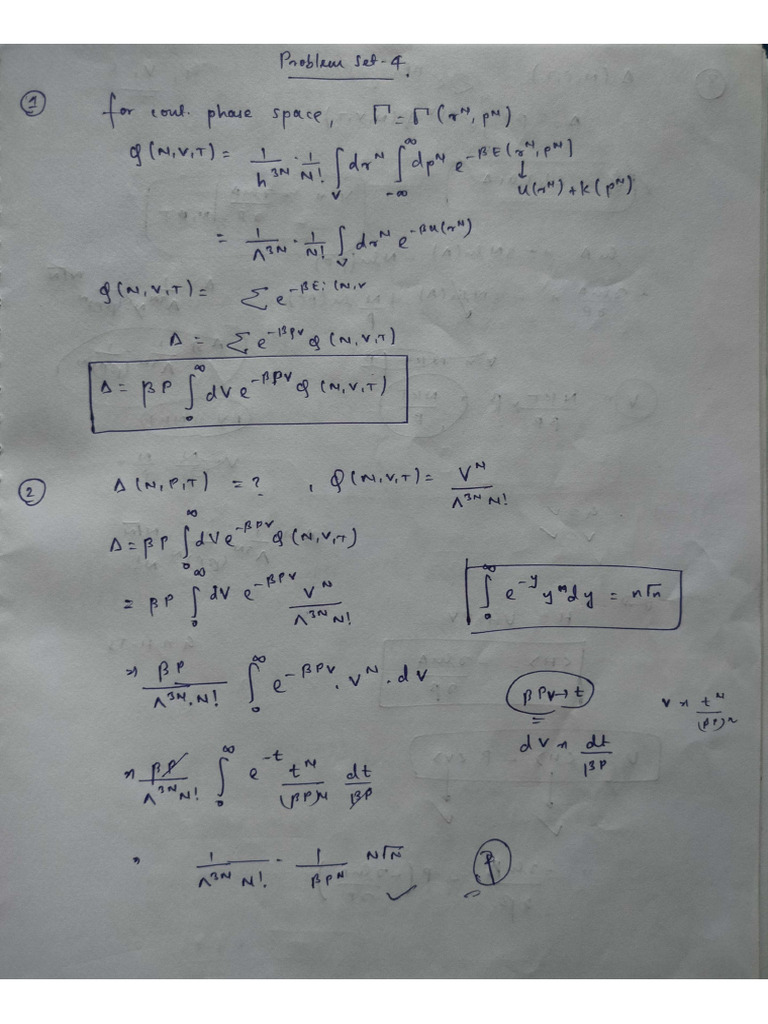 Problem Set-4.
① for cont. phase space, Γ = Γ(r^N, p^N)
Q(N,V,T) = 1/h^3N · 1/N! ∫_V dr^N ∫_-∞^∞ dp^N e^-βE(r^N, p^N]
↓
u(r^N) + k(p^N)
= 1/Λ^3N · 1/N! ∫_V dr^N e^-βu(r^N)
Q(N,V,T) = Σ e^-βEi(N,V
Δ = Σ e^-βPV Q(N,V,T)
Δ = βP ∫_0^∞ dV e^-βPV Q(N,V,T)
② Δ(N,P,T) = ? , Q(N,V,T) = V^N/Λ^3N N!
Δ = βP ∫_0^∞ dV e^-βPV Q(N,V,T)
= βP ∫_0^∞ dV e^-βPV V^N/Λ^3N N!
∫_0^∞ e^-y y^n dy = n√n
⇒ βP/Λ^3N·N! ∫_0^∞ e^-βPV · V^N · dV
βPV → t
=
V ⇒ t^N/(βP)^N
dV ⇒ dt/βP
⇒ βP/Λ^3N N! ∫_0^∞ e^-t t^N/(βP)^N dt/βP
⇒ 1/Λ^3N N! - 1/βP^N N√N ✓